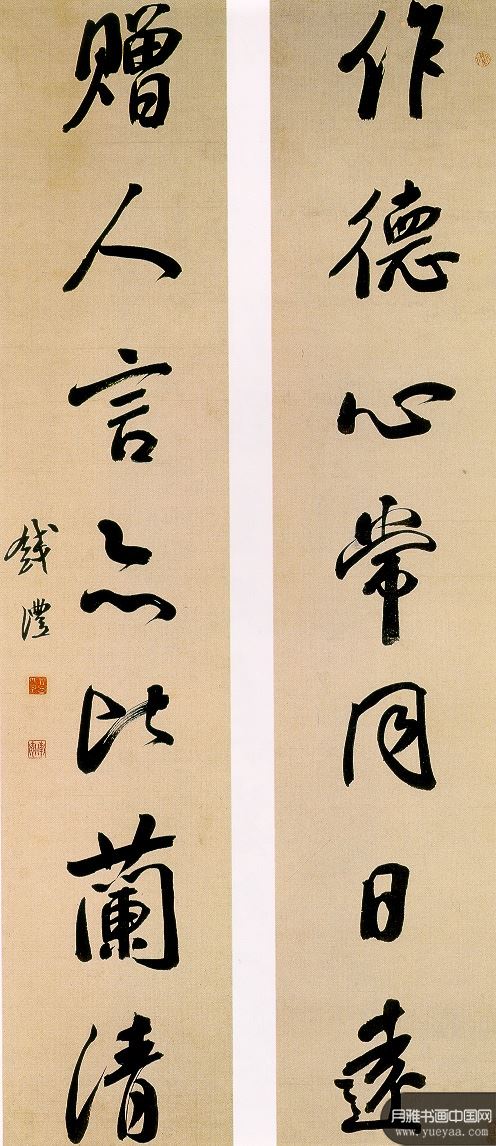 作德心常同日遠
贈人言亦比蘭清
錢灃
月雅书画中国网
www.yueyaa.com